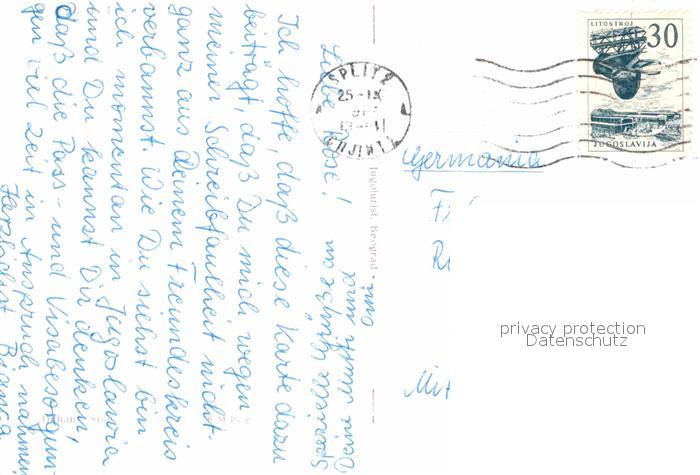 Liebe Rose!
Ich hoffe, daß diese Karte dazu
beiträgt, daß Du mich wegen
meiner Schreibfaulheit nicht
ganz aus Deinem Freundeskreis
verbannst. Wie Du siehst bin
ich momentan in Jugoslawien
und Du kannst Dir denken,
daß die Pass- und Visabesorgun-
gen viel Zeit in Anspruch nahmen.
Herzlichst
Deine Mutti und
Omi.
Jugoturist, Beograd
SPLIT 2
25-IX
LITOSTROJ
30
JUGOSLAVIJA
Germania
privacy protection
Datenschutz